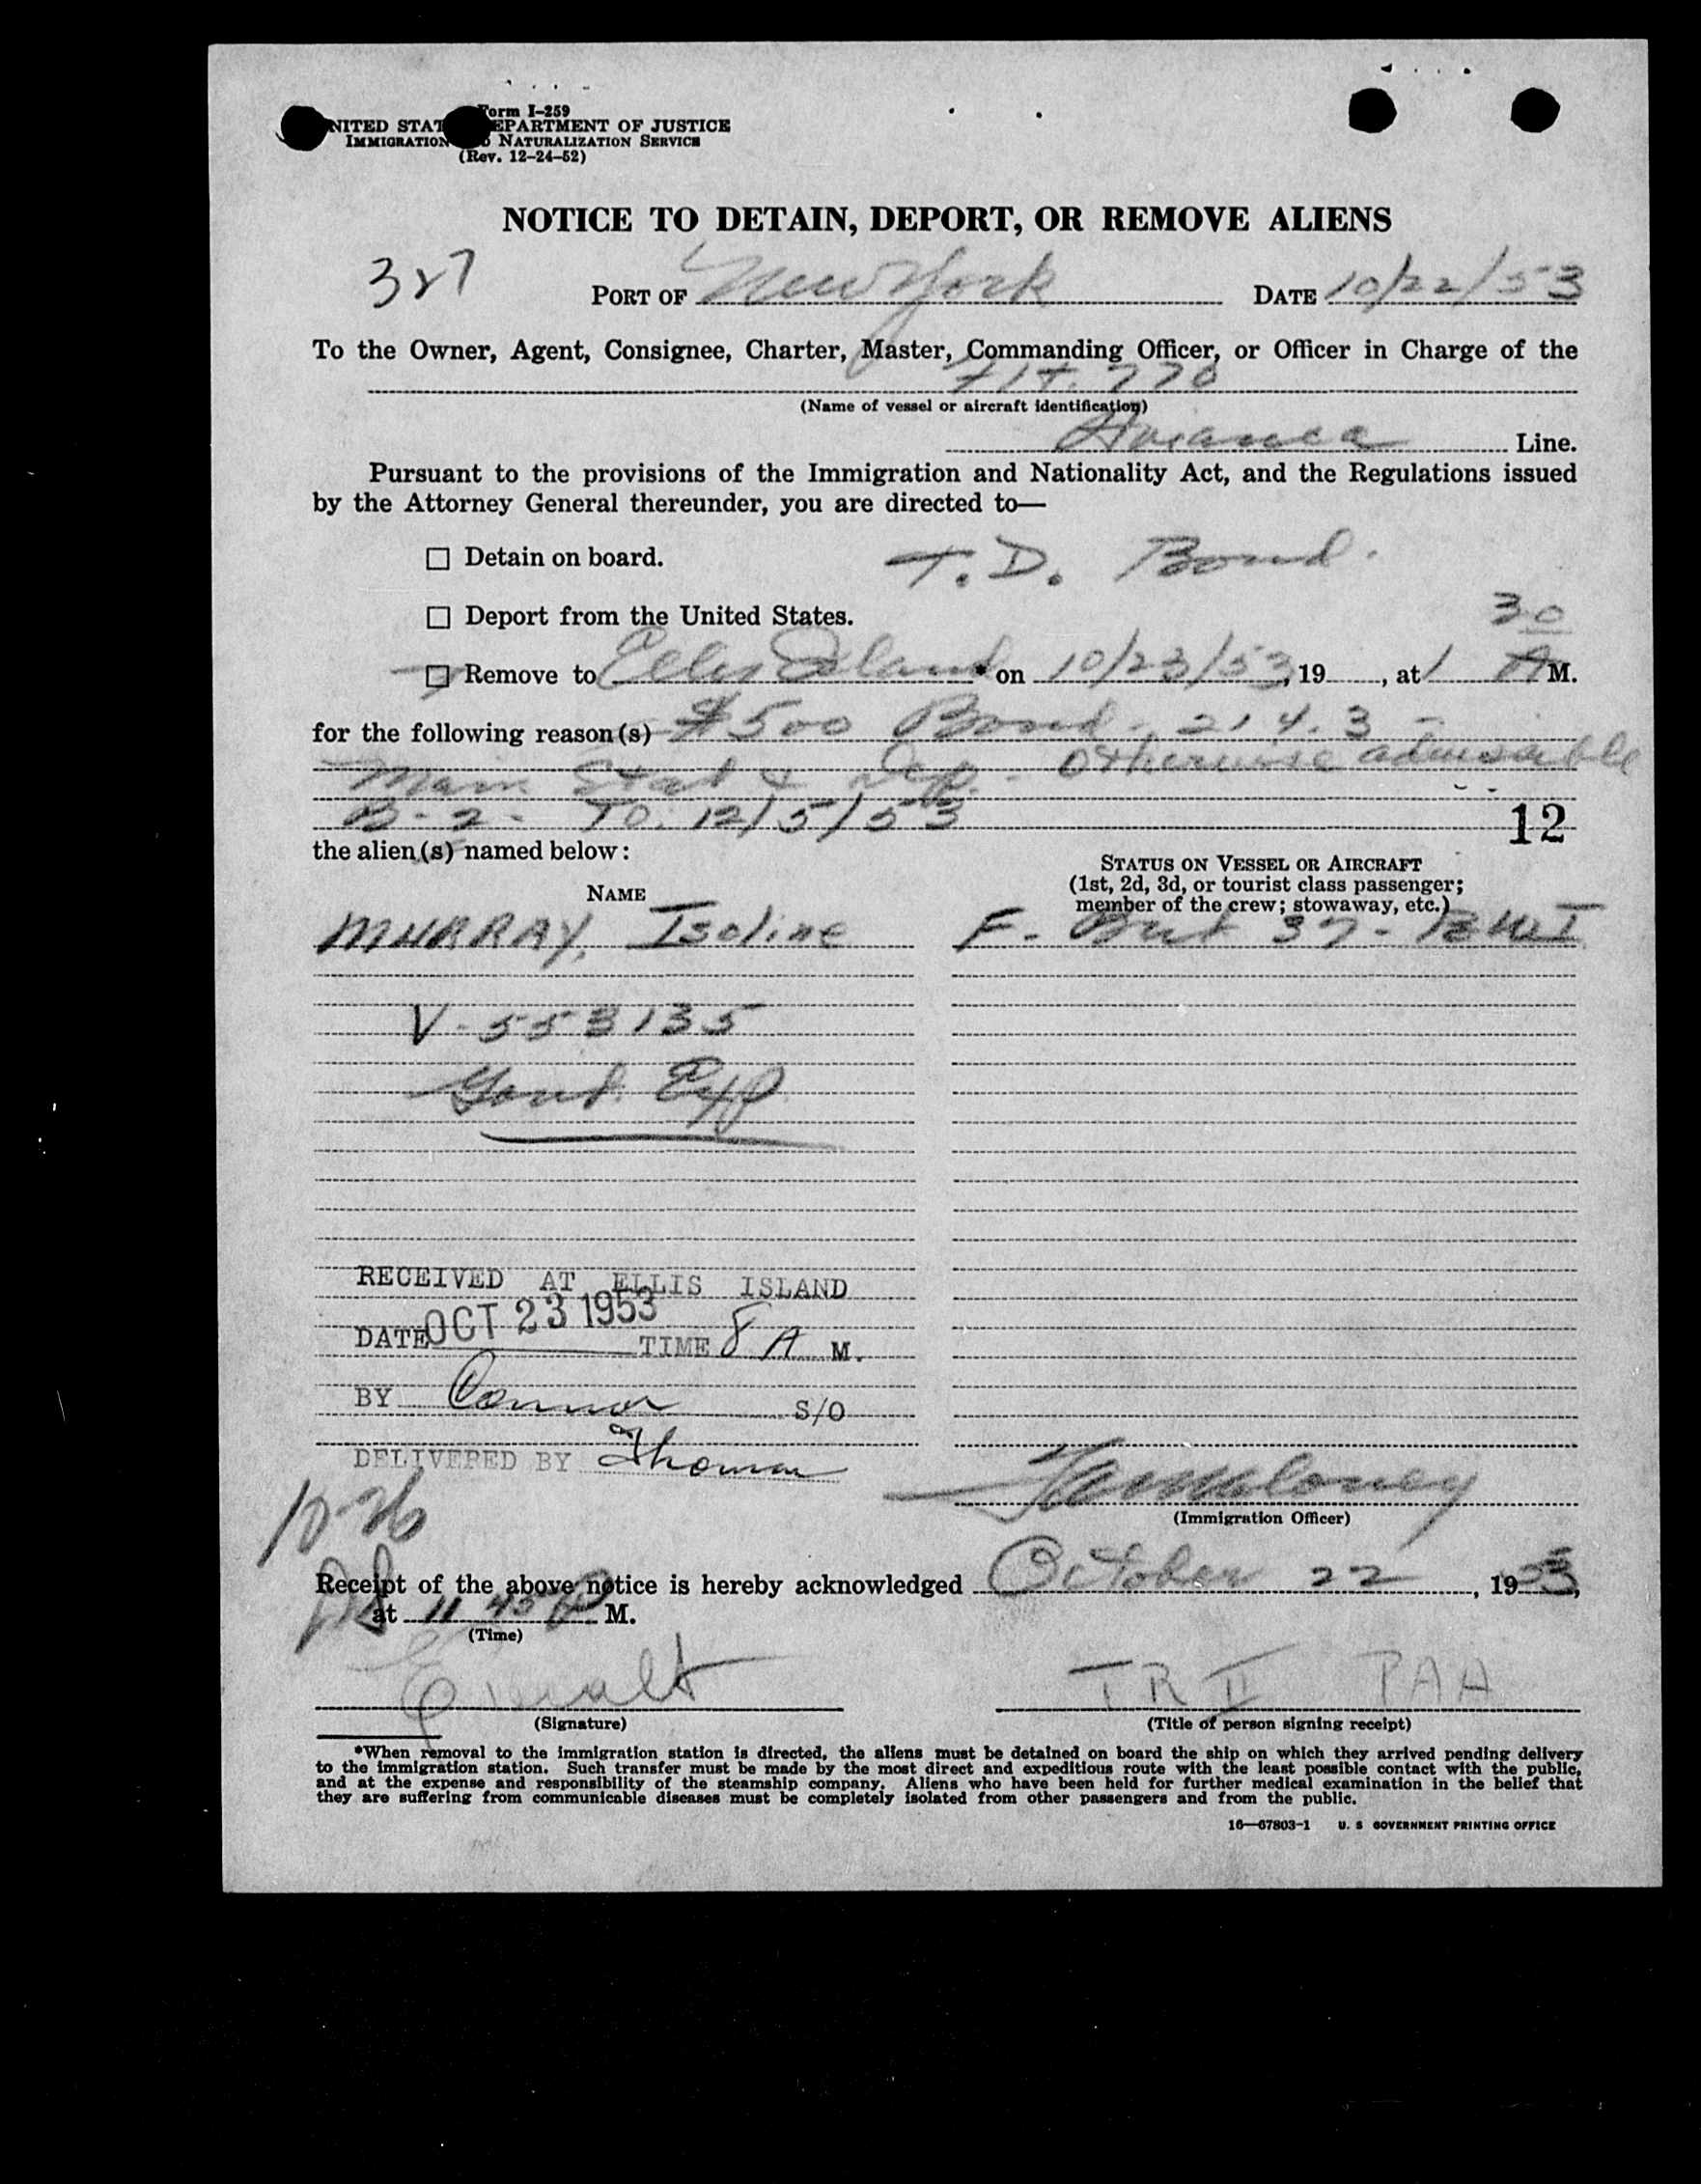 Form I-259
UNITED STATES DEPARTMENT OF JUSTICE
IMMIGRATION AND NATURALIZATION SERVICE
(Rev. 12-24-52)
NOTICE TO DETAIN, DEPORT, OR REMOVE ALIENS
327
PORT OF New York DATE 10/22/53
To the Owner, Agent, Consignee, Charter, Master, Commanding Officer, or Officer in Charge of the
Flt. 770
(Name of vessel or aircraft identification)
Avianca Line.
Pursuant to the provisions of the Immigration and Nationality Act, and the Regulations issued
by the Attorney General thereunder, you are directed to—
☐ Detain on board. T. D. Bond.
☐ Deport from the United States.
☐ Remove to Ellis Island * on 10/23/53, 19 , at 1 30 A M.
for the following reason(s) $500 Bond - 214.3 -
Main Stat & Dep. - Otherwise admissible
B-2- TO. 12/5/53
12
the alien(s) named below:
NAME
STATUS ON VESSEL OR AIRCRAFT
(1st, 2d, 3d, or tourist class passenger;
member of the crew; stowaway, etc.)
MURRAY, Isoline F- Brit 37 - BWI
V-553135
Govt. Exp
RECEIVED AT ELLIS ISLAND
DATE OCT 23 1953 TIME 8 A M.
BY Connor S/O
DELIVERED BY Thomas
10-26
(Immigration Officer)
Receipt of the above notice is hereby acknowledged October 22, 1953,
at 11 45 P M.
(Time)
TR II PAA
(Signature) (Title of person signing receipt)
*When removal to the immigration station is directed, the aliens must be detained on board the ship on which they arrived pending delivery
to the immigration station. Such transfer must be made by the most direct and expeditious route with the least possible contact with the public,
and at the expense and responsibility of the steamship company. Aliens who have been held for further medical examination in the belief that
they are suffering from communicable diseases must be completely isolated from other passengers and from the public.
16—67803-1 U. S GOVERNMENT PRINTING OFFICE